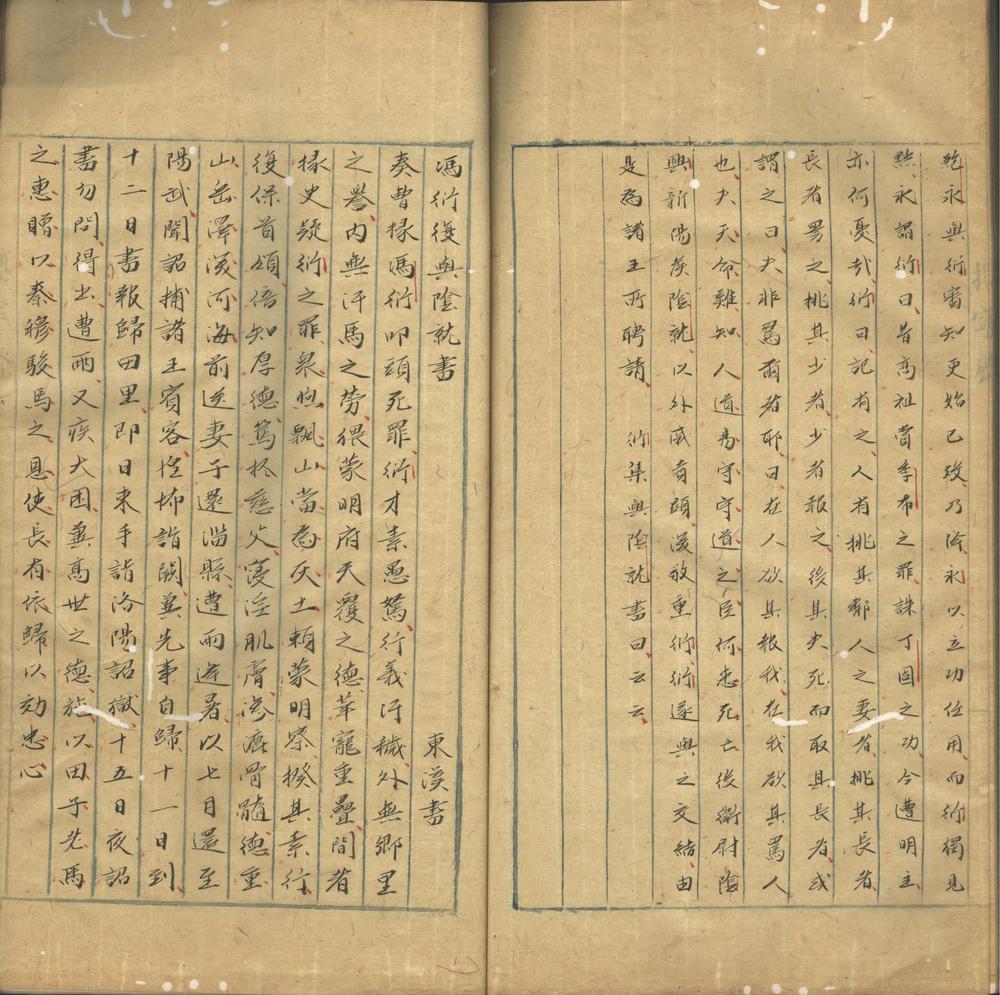 鮑永與衍審知更始已歿乃降永以立功任用而衍獨見
黜永謂衍曰昔高祖賞季布之罪誅丁固之功今遭明主
亦何憂哉衍曰記有之人有挑其鄰人之妻者挑其長者
長者詈之挑其少者少者報之後其夫死而取其長者或
謂之曰夫非罵爾者耶曰在人欲其報我在我欲其罵人
也夫天命難知人道易守守道之臣何患死亡後衛尉陰
興新陽侯陰就以外戚貴顯深敬重衍衍遂與之交結由
是為諸王所聘請 衍集與陰就書曰云云
馮衍復與陰就書 東漢書
奏曹掾馮衍叩頭死罪衍才素愚駑行義汙穢外無鄉里
之譽內無汗馬之勞猥蒙明府天覆之德華寵重疊間者
掾史疑衍之罪衆煦飄山當為灰土賴蒙明察揆其素行
復保首領倍知厚德篤於慈父寖淫肌膚滲漉骨髓德重
山岳澤深河海前送妻子還淄縣遭雨逆暑以七月還至
陽武聞詔捕諸王賓客惶怖詣闕冀先事自歸十一日到
十二日書報歸田里即日束手詣洛陽詔獄十五日夜詔
書勿問得出遭雨又疾大困冀高世之德施以田子老馬
之惠贈以秦穆駿馬之恩使長有依歸以効忠心